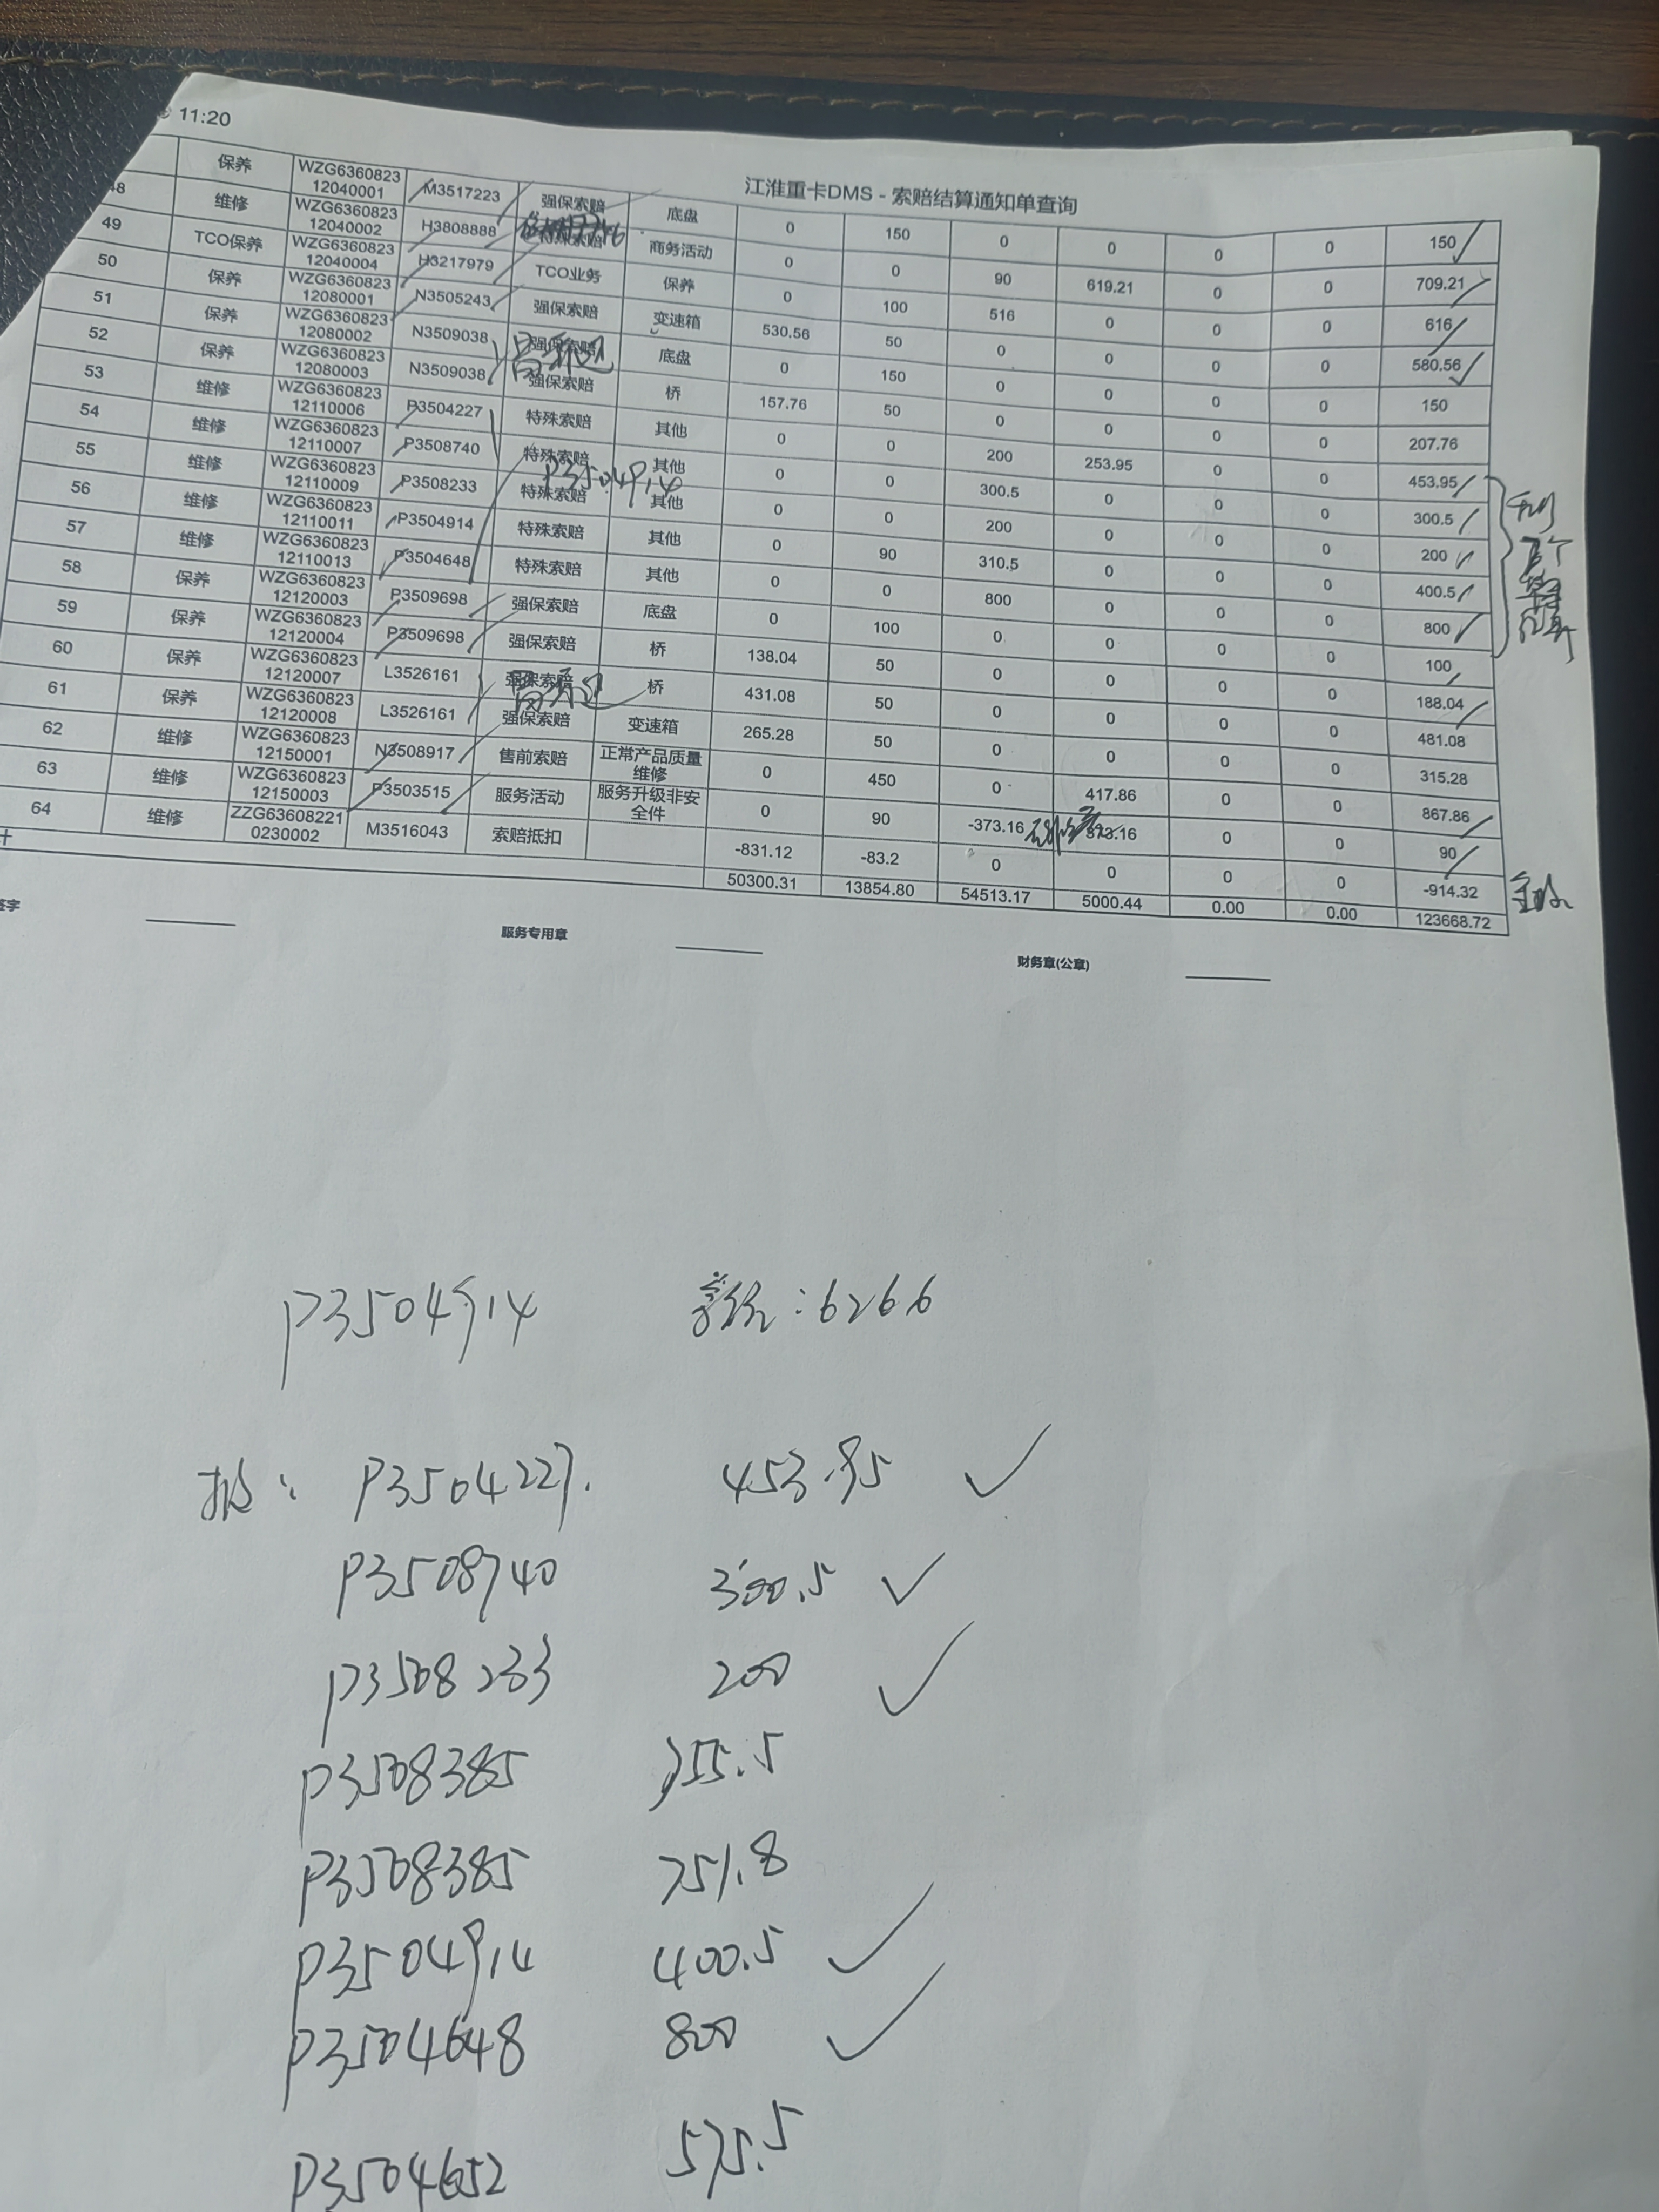 11:20
江淮重卡DMS - 索赔结算通知单查询
保养 WZG6360823 12040001 M3517223 强保索赔 底盘 0 150 0 0 0 0 150
48 维修 WZG6360823 12040002 H3808888 特殊索赔 商务活动 0 0 90 619.21 0 0 709.21
49 TCO保养 WZG6360823 12040004 H3217979 TCO业务 保养 0 100 516 0 0 0 616
50 保养 WZG6360823 12080001 N3505243 强保索赔 变速箱 530.56 50 0 0 0 0 580.56
51 保养 WZG6360823 12080002 N3509038 强保索赔 底盘 0 150 0 0 0 0 150
52 保养 WZG6360823 12080003 N3509038 强保索赔 桥 157.76 50 0 0 0 0 207.76
53 维修 WZG6360823 12110006 P3504227 特殊索赔 其他 0 0 200 253.95 0 0 453.95
54 维修 WZG6360823 12110007 P3508740 特殊索赔 其他 0 0 300.5 0 0 0 300.5
P3504914
55 维修 WZG6360823 12110009 P3508233 特殊索赔 其他 0 0 200 0 0 0 200
56 维修 WZG6360823 12110011 P3504914 特殊索赔 其他 0 90 310.5 0 0 0 400.5
57 维修 WZG6360823 12110013 P3504648 特殊索赔 其他 0 0 800 0 0 0 800
58 保养 WZG6360823 12120003 P3509698 强保索赔 底盘 0 100 0 0 0 0 100
59 保养 WZG6360823 12120004 P3509698 强保索赔 桥 138.04 50 0 0 0 0 188.04
60 保养 WZG6360823 12120007 L3526161 强保索赔 桥 431.08 50 0 0 0 0 481.08
61 保养 WZG6360823 12120008 L3526161 强保索赔 变速箱 265.28 50 0 0 0 0 315.28
62 维修 WZG6360823 12150001 N3508917 售前索赔 正常产品质量维修 0 450 0 417.86 0 0 867.86
63 维修 WZG6360823 12150003 P3503515 服务活动 服务升级非安全件 0 90 -373.16 373.16 0 0 90
64 维修 ZZG63608221 0230002 M3516043 索赔抵扣 -831.12 -83.2 0 0 0 0 -914.32
计 50300.31 13854.80 54513.17 5000.44 0.00 0.00 123668.72
签字 服务专用章 财务章(公章)
P3504914 :6266
P3504227. 453.95 ✓
P3508740 300.5 ✓
P3508233 200 ✓
P3508385 755.5
P3508385 751.8
P3504914 400.5 ✓
P3504648 800 ✓
P3504652 575.5